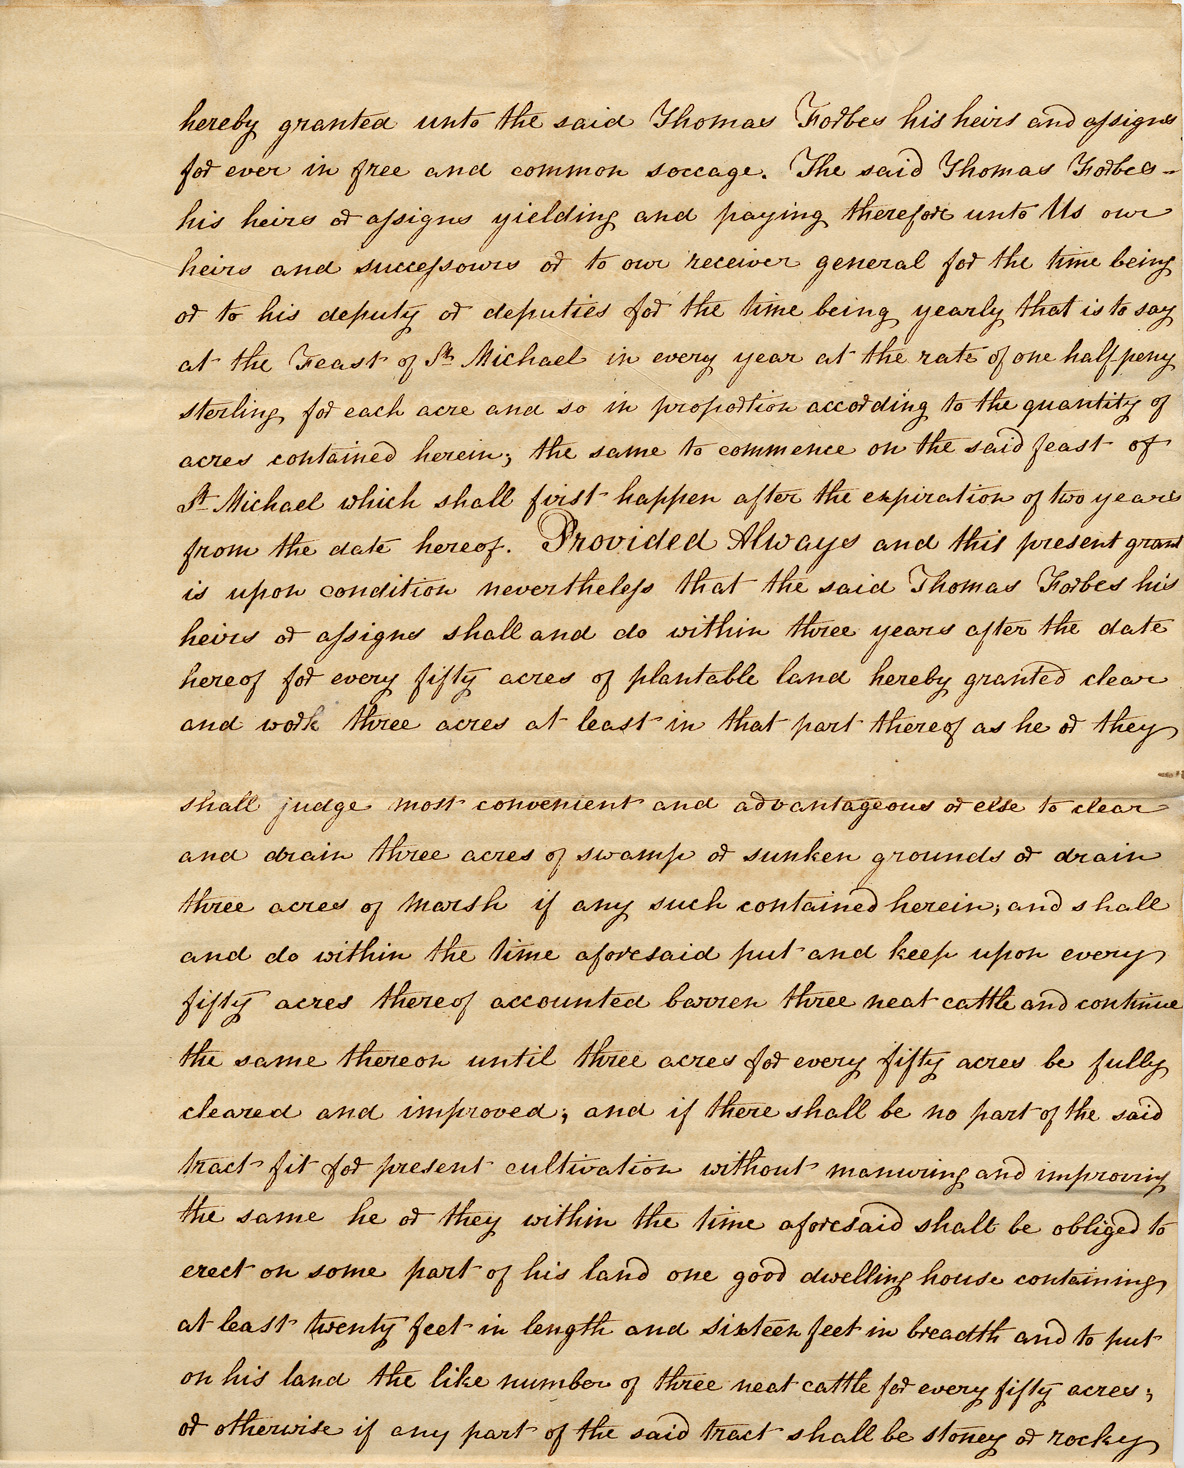 hereby granted unto the said Thomas Forbes his heirs and assigns
for ever in free and common soccage. The said Thomas Forbes -
his heirs or assigns yielding and paying therefore unto Us our
heirs and successours or to our receiver general for the time being
or to his deputy or deputies for the time being yearly that is to say
at the Feast of St. Michael in every year at the rate of one halfpeny
sterling for each acre and so in proportion according to the quantity of
acres contained herein; the same to commence on the said feast of
St. Michael which shall first happen after the expiration of two years
from the date hereof. Provided Always and this present grant
is upon condition nevertheless that the said Thomas Forbes his
heirs or assigns shall and do within three years after the date
hereof for every fifty acres of plantable land hereby granted clear
and work three acres at least in that part thereof as he or they
shall judge most convenient and advantageous or else to clear
and drain three acres of swamp or sunken grounds or drain
three acres of marsh if any such contained herein; and shall
and do within the time aforesaid put and keep upon every
fifty acres thereof accounted barren three neat cattle and continue
the same thereon until three acres for every fifty acres be fully
cleared and improved; and if there shall be no part of the said
tract fit for present cultivation without manuring and improving
the same he or they within the time aforesaid shall be obliged to
erect on some part of his land one good dwelling house containing
at least twenty feet in length and sixteen feet in breadth and to put
on his land the like number of three neat cattle for every fifty acres;
or otherwise if any part of the said tract shall be stoney or rocky